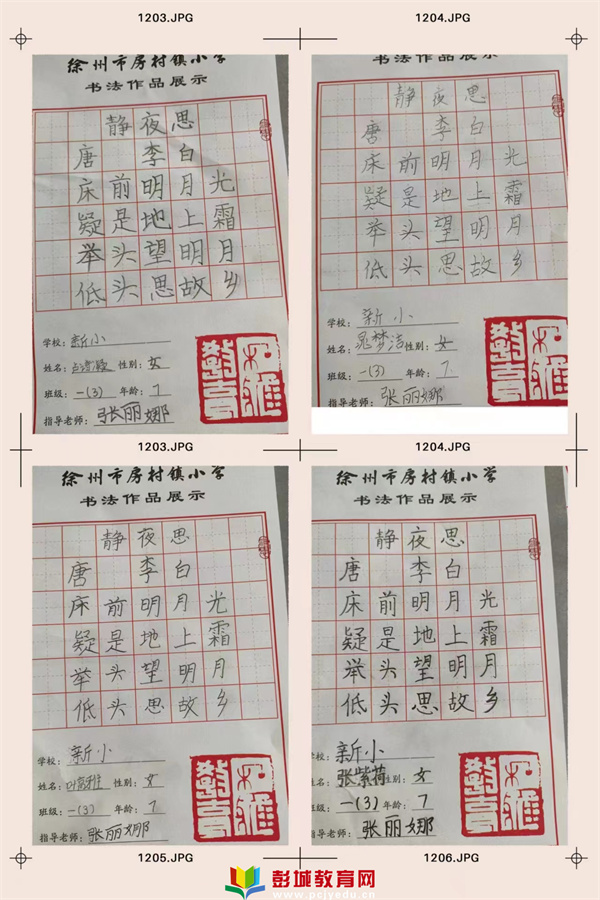 1203.JPG
1204.JPG
徐州市房村镇小学
书法作品展示
静夜思
唐 李白
床前明月光
疑是地上霜
举头望明月
低头思故乡
学校: 新小
姓名: 性别: 女
班级: 一(3) 年龄: 7
指导老师: 张丽娜
书法作品展示
静夜思
唐 李白
床前明月光
疑是地上霜
举头望明月
低头思故乡
学校: 新小
姓名: 晁梦洁 性别: 女
班级: 一(3) 年龄: 7
指导老师: 张丽娜
1203.JPG
1204.JPG
徐州市房村镇小学
书法作品展示
静夜思
唐 李白
床前明月光
疑是地上霜
举头望明月
低头思故乡
学校: 新小
姓名: 性别: 女
班级: 一(3) 年龄: 7
指导老师: 张丽娜
徐州市房村镇小学
书法作品展示
静夜思
唐 李白
床前明月光
疑是地上霜
举头望明月
低头思故乡
学校: 新小
姓名: 张紫荷 性别: 女
班级: 一(3) 年龄: 7
指导老师: 张丽娜
1205.JPG
1206.JPG
彭城教育网
www.pcjyedu.cn